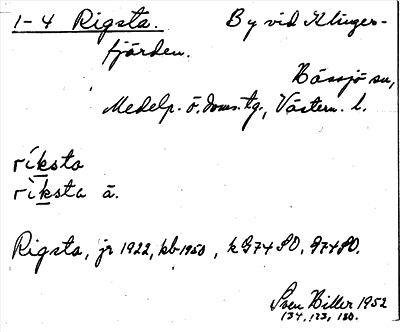 1-4 Rigsta. By vid Klinger-
fjärden.
Hässjö sn,
Medelp. ö. doms. tg., Västern. l.
ríksta
riksta ä.
Rigsta, jr 1922, kb 1950, k G74 SO, G74 SO.
Sven Biller 1952
134, 123, 180.